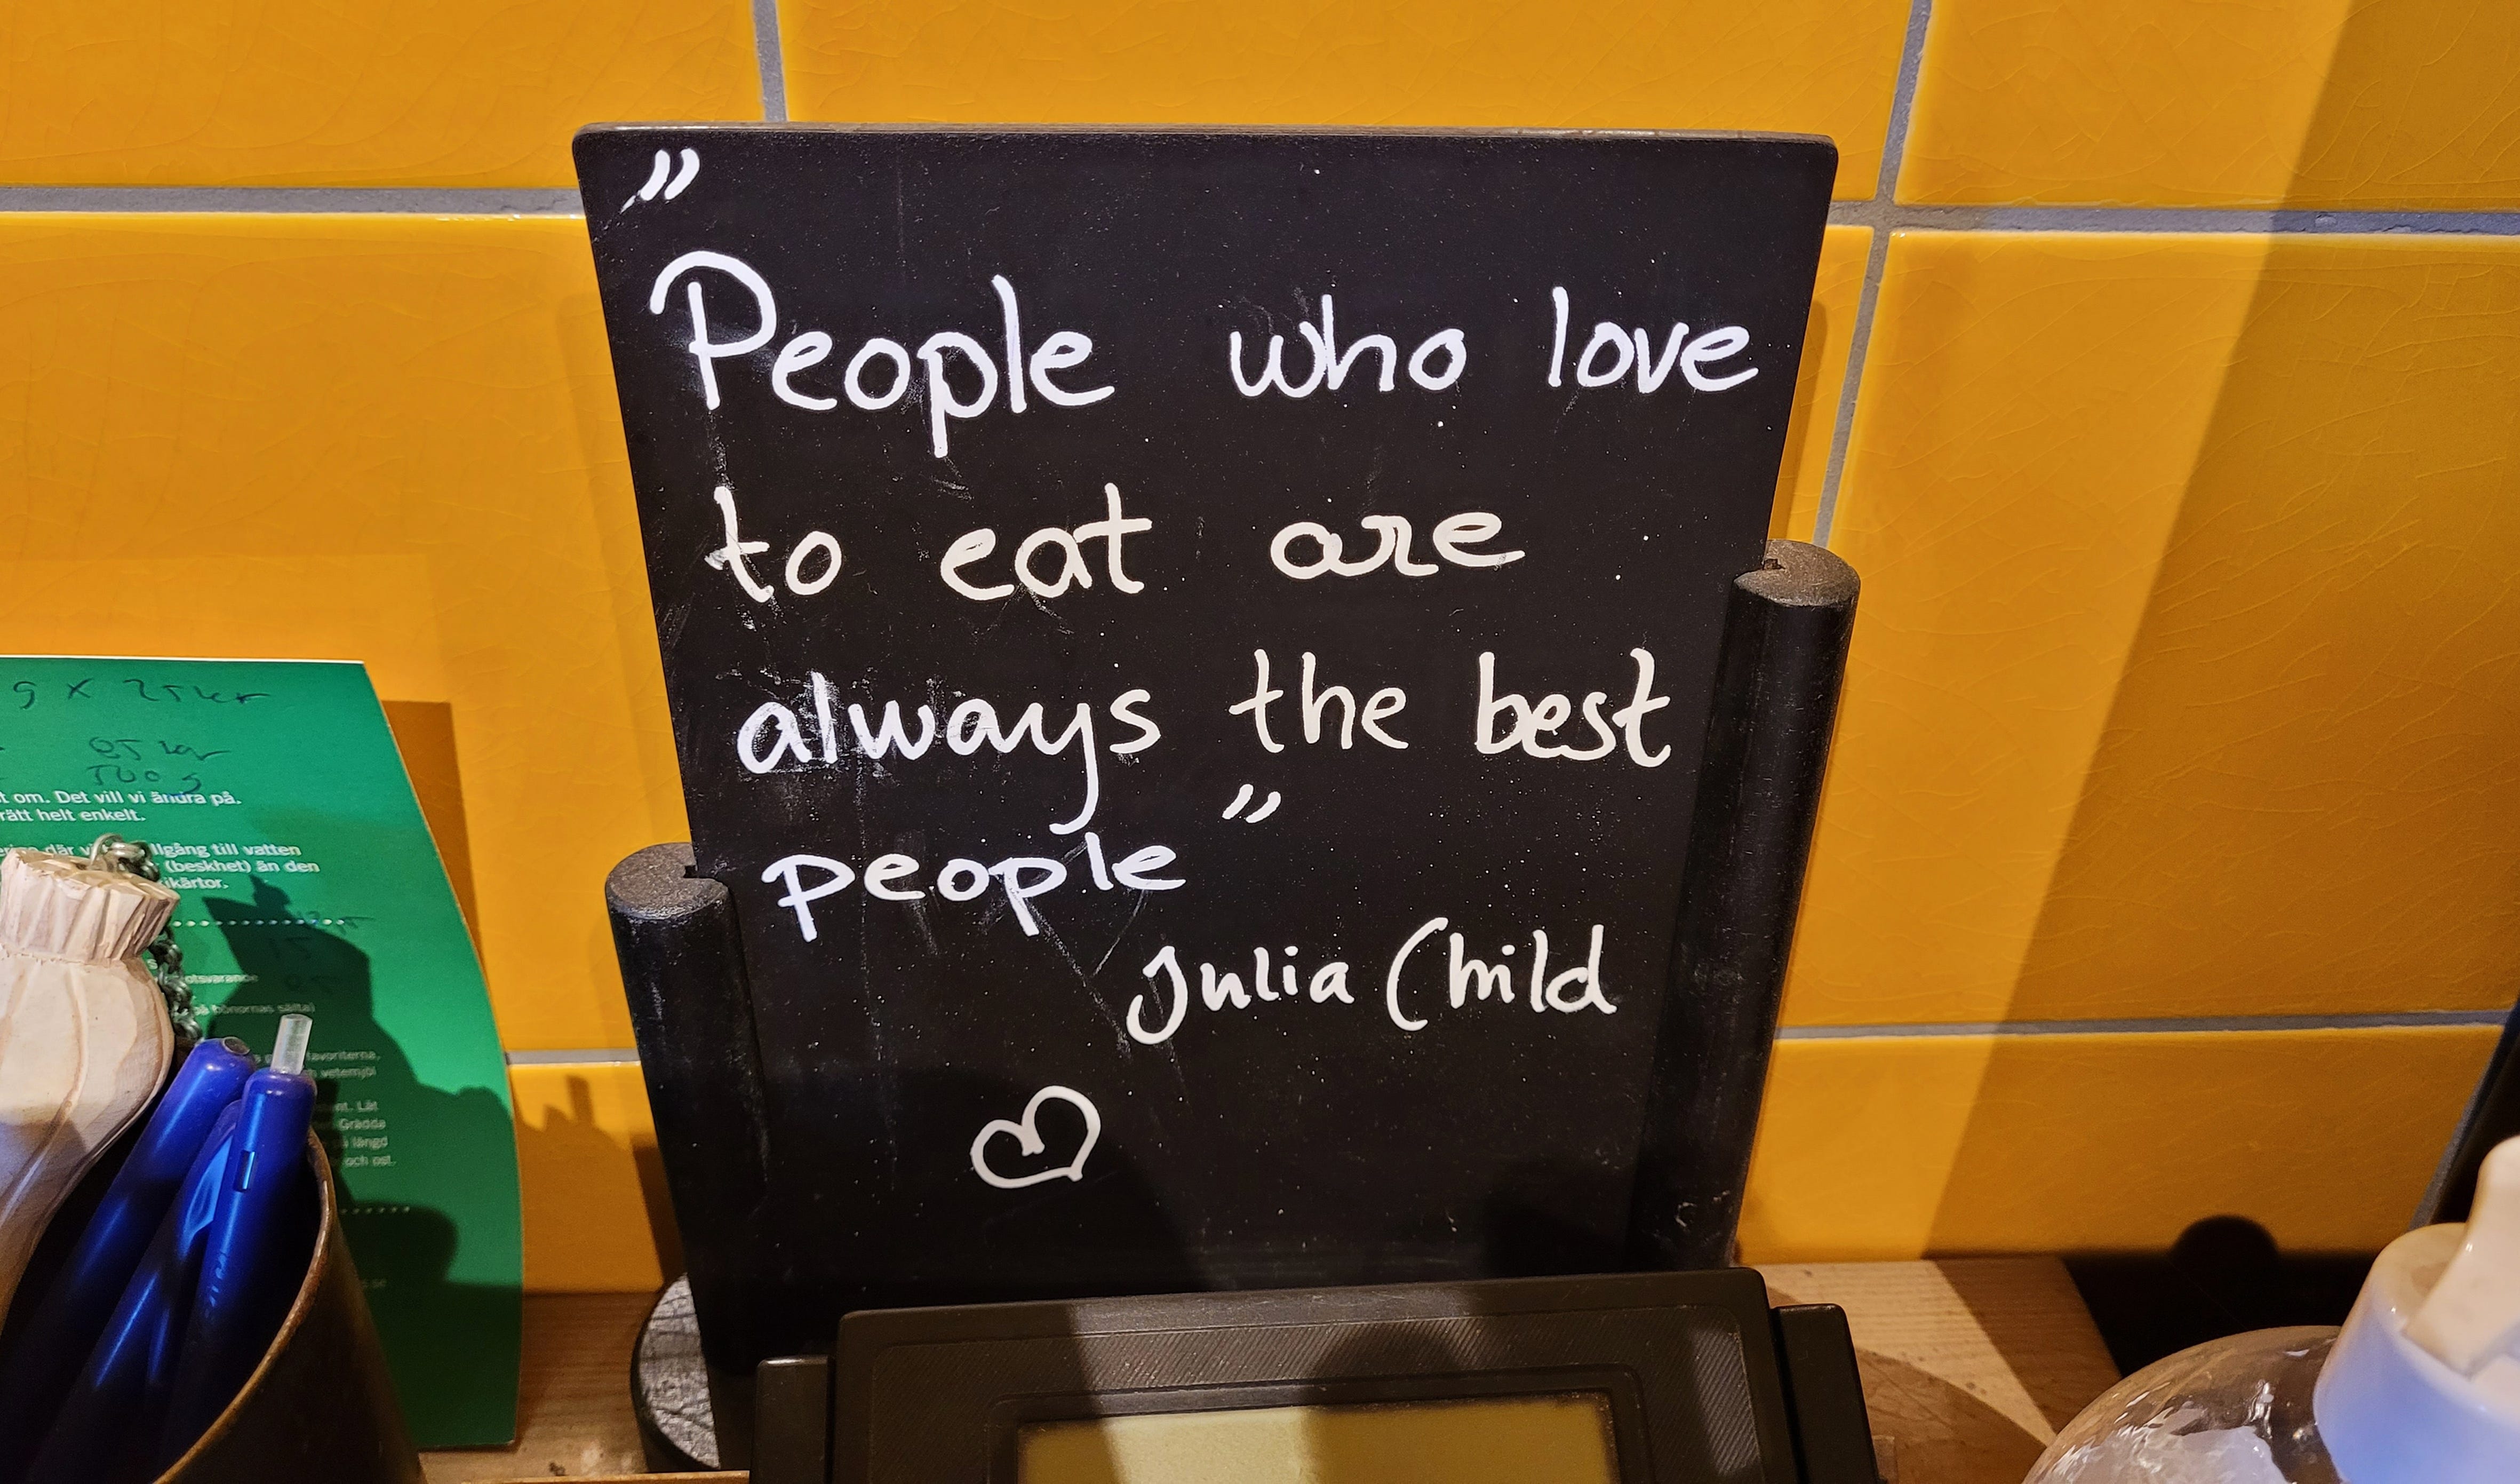 ”
People who love
to eat are
always the best
people”
Julia Child
9 x 25 kr
85 kr
t om. Det vill vi ändra på.
rätt helt enkelt.
där llgång till vatten
(beskhet) än den
ikärtor.
otsvarande
på bönornas sälta)
favoriterna,
vetemjöl
Låt
Grädda
längd
och ost.